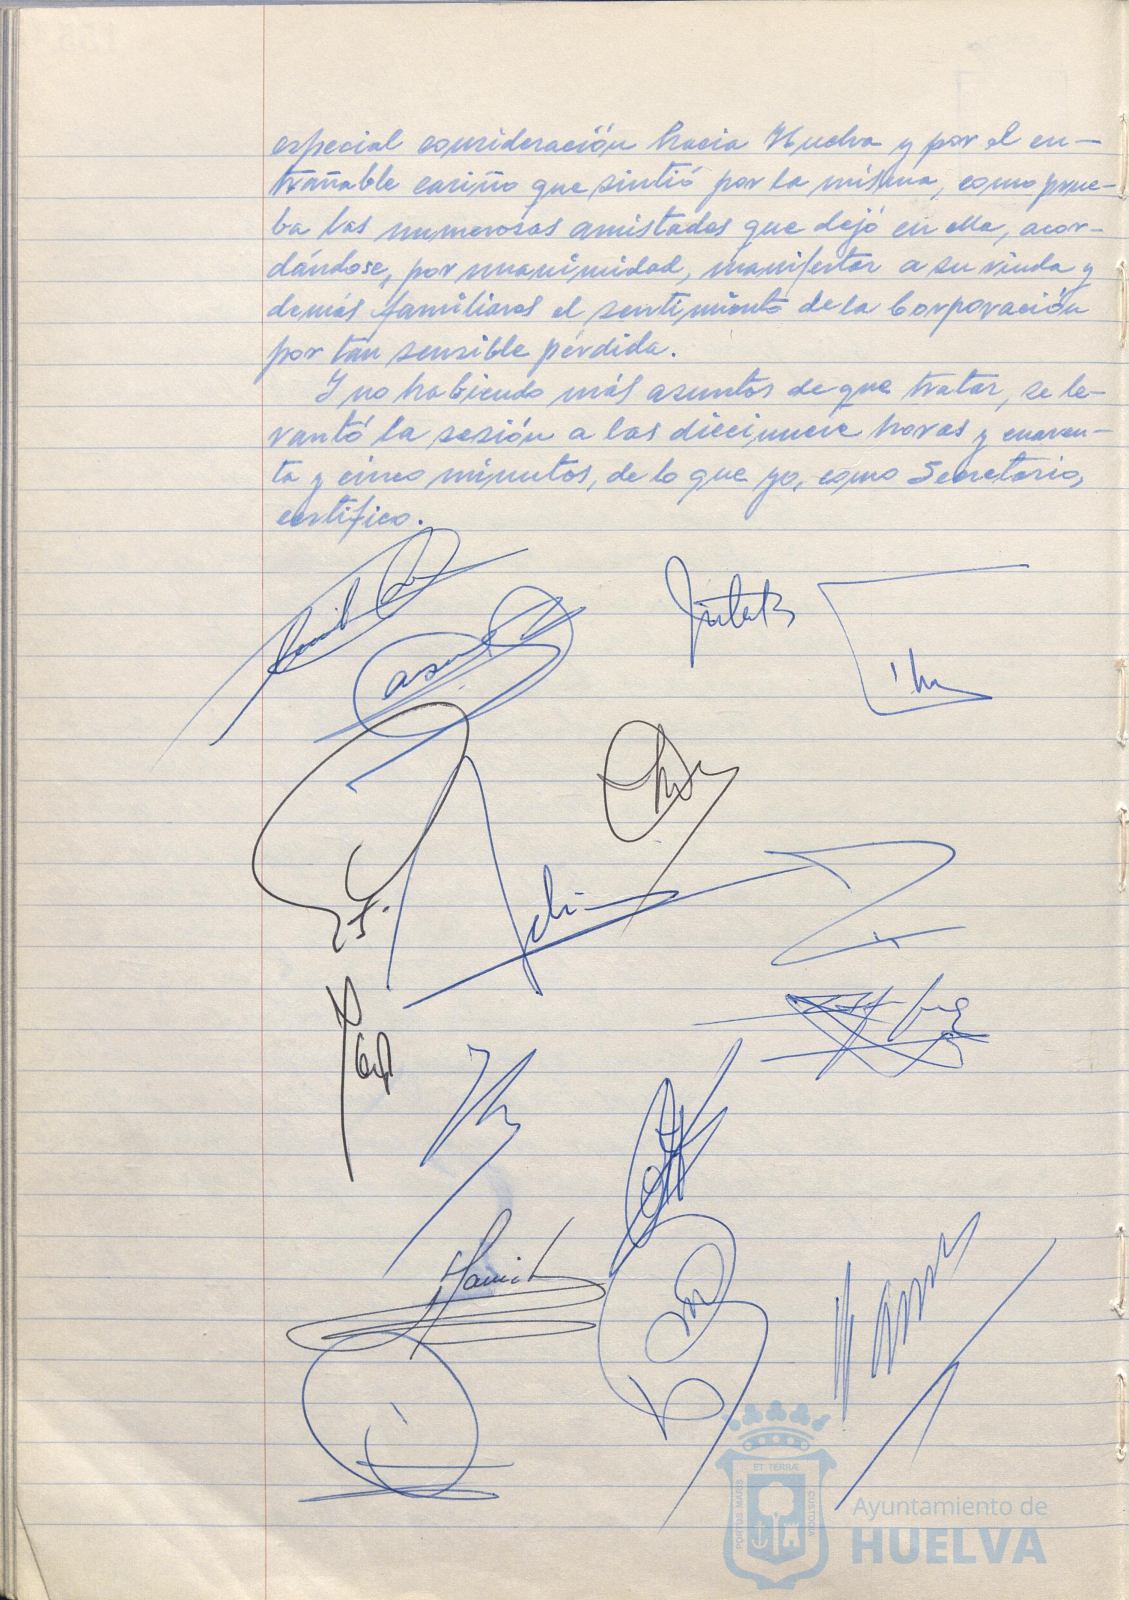 especial consideración hacia Huelva y por el en-
trañable cariño que sintió por la misma, como prue-
ba las numerosas amistades que dejó en ella, acor-
dándose, por unanimidad, manifestar a su viuda y
demás familiares el sentimiento de la Corporación
por tan sensible pérdida.
Y no habiendo más asuntos de que tratar, se le-
vantó la sesión a las diecinueve horas y cuaren-
ta y cinco minutos, de lo que yo, como Secretario,
certifico.
ET TERRÆ
PORTUS MARIS
CUSTODIA
Ayuntamiento de
HUELVA